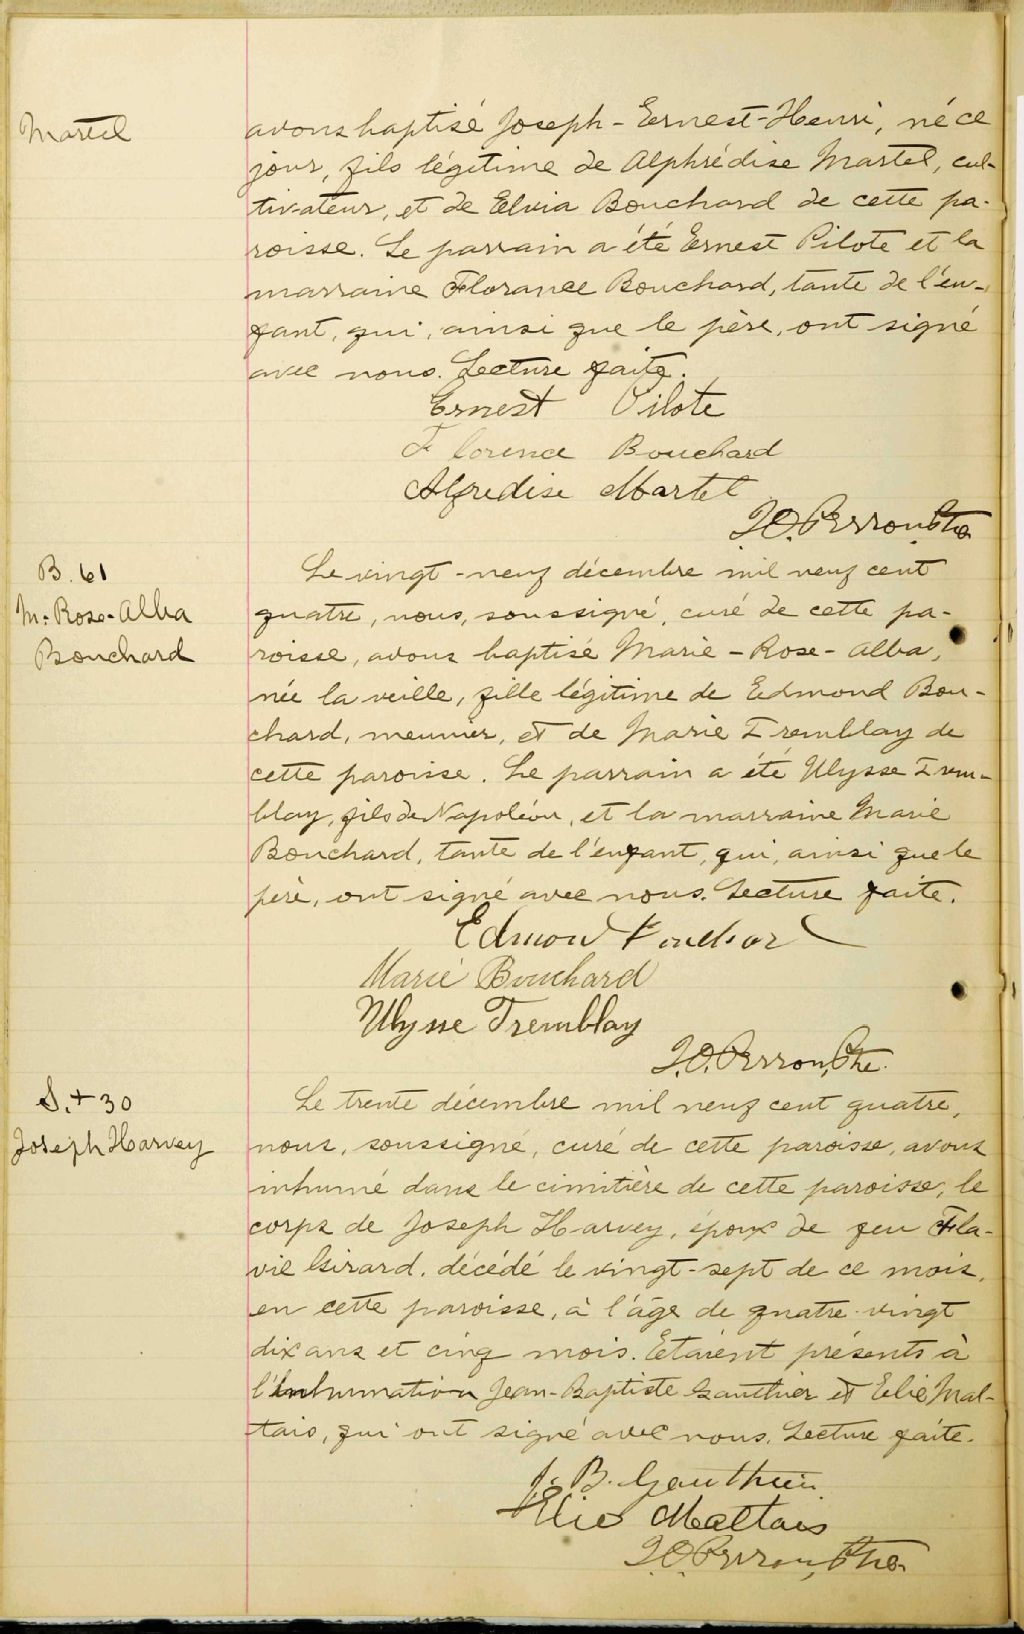 Martel
avons baptisé Joseph-Ernest-Henri, né ce
jour, fils légitime de Alphrédise Martel, cul-
tivateur, et de Elvia Bouchard de cette pa-
roisse. Le parrain a été Ernest Pilote et la
marraine Florance Bouchard, tante de l'en-
fant, qui, ainsi que le père, ont signé
avec nous. Lecture faite.
Ernest Pilote
Florence Bouchard
Alfredise Martel
J.O. Perron, Ptre
B. 61
M.-Rose-Alba
Bouchard
Le vingt-neuf décembre mil neuf cent
quatre, nous, soussigné, curé de cette pa-
roisse, avons baptisé Marie-Rose-Alba,
née la veille, fille légitime de Edmond Bou-
chard, meunier, et de Marie Tremblay de
cette paroisse. Le parrain a été Ulysse Trem-
blay, fils de Napoléon, et la marraine Marie
Bouchard, tante de l'enfant, qui, ainsi que le
père, ont signé avec nous. Lecture faite.
Edmond Bouchard
Marie Bouchard
Ulysse Tremblay
J.O. Perron, Ptre.
S. + 30
Joseph Harvey
Le trente décembre mil neuf cent quatre,
nous, soussigné, curé de cette paroisse, avons
inhumé dans le cimitière de cette paroisse, le
corps de Joseph Harvey, époux de feu Fla-
vie Girard, décédé le vingt-sept de ce mois,
en cette paroisse, à l'âge de quatre-vingt
dix ans et cinq mois. Etaient présents à
l'inhumation Jean-Baptiste Gauthier et Elie Mal-
tais, qui ont signé avec nous. Lecture faite.
J. B. Gauthier
Elie Maltais
J.O. Perron, Ptre